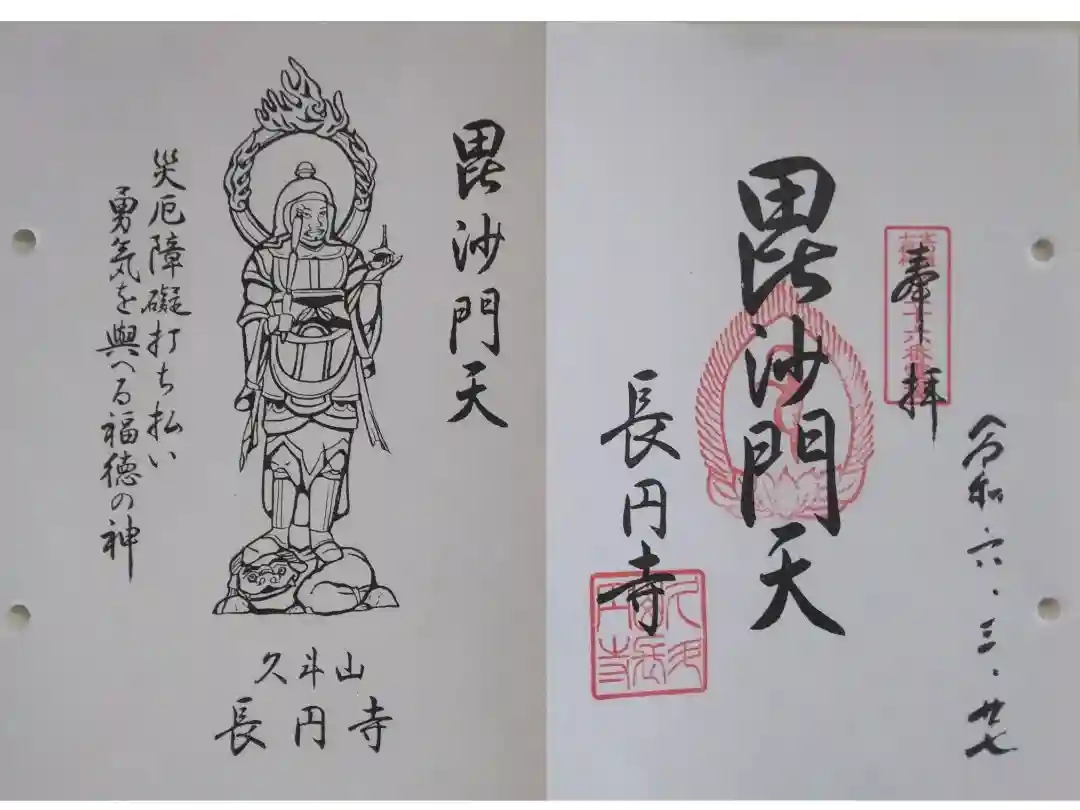 毘沙門天
災厄障礙打ち払い
勇気を與へる福徳の神
久斗山
長円寺
令和六・三・廿七
奉拝
毘沙門天
長円寺